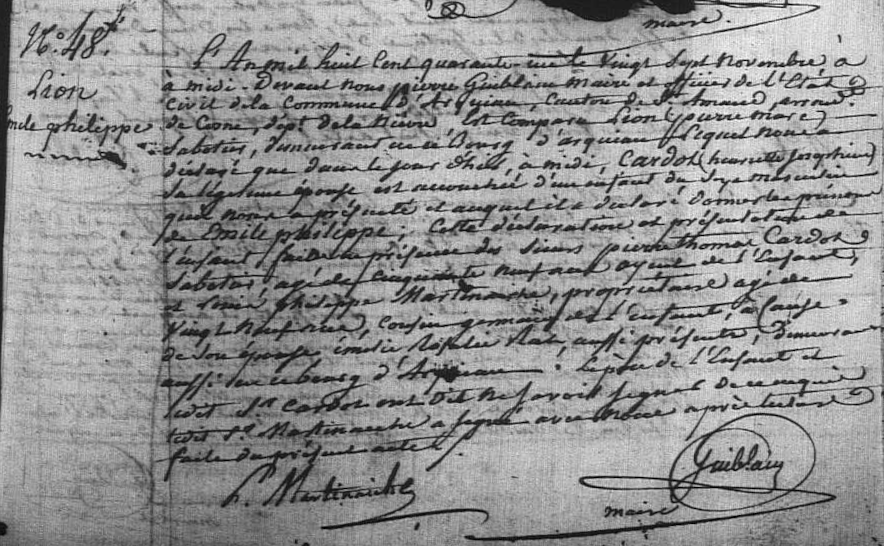 maire.
N.o 48.
Lion
Emile philippe
L'An mil huit Cent quarante le Vingt Sept Novembre à
à midi. Devant nous pierre Guiblain maire et officier de l'Etat
Civil de la Commune d'Arquian, Canton de St. Amand, arrond.
de Cosne, dépt. de la Nièvre Est Comparu Lion (pierre marc)
Sabotier, demeurant en ce Bourg d'arquian Lequel nous a
déclaré que dans le jour d'hier, à midi, Cardot (henriette Josephine)
Sa légitime épouse est accouchée d'un enfant du Sexe masculin
qu'il nous a présenté et auquel il a déclaré donner les prénoms
de Emile philippe; Cette déclaration et présentation de
l'enfant faite en présence des Sieurs pierre thomas Cardot
Sabotier, agé de cinquante neuf ans ayeul de l'Enfant,
et philippe Martinaiche, propriétaire agé de
Vingt Neuf ans, Cousin germain de l'enfant, à Cause
de Son épouse émilie aussi présente, demeurant
aussi en ce bourg d'Arquian. Le père de l'Enfant et
ledit Sr. Cardot ont dit ne Savoir Signer de ce requis
ledit Sr. Martinaiche a Signé avec Nous après lecture
faite du présent acte.
P. Martinaiche
Guiblain
maire